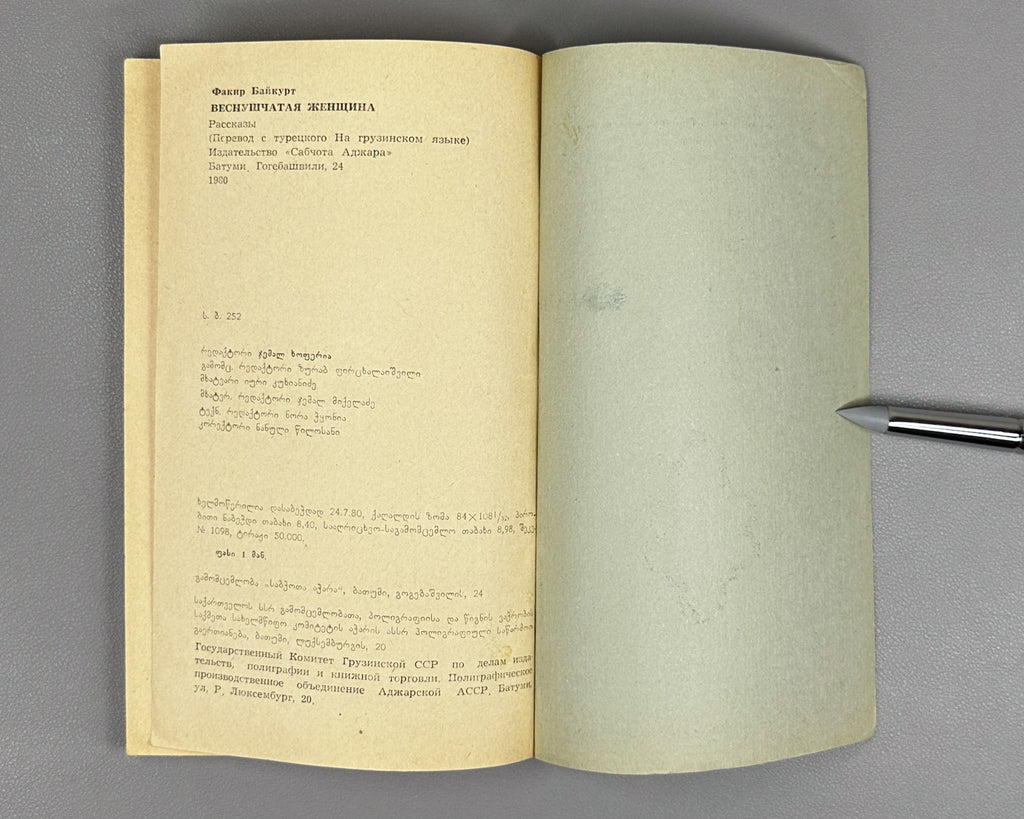 Факир Байкурт
ВЕСНУШЧАТАЯ ЖЕНЩИНА
Рассказы
(Перевод с турецкого На грузинском языке)
Издательство «Сабчота Аджара»
Батуми, Гогебашвили, 24
1980
ს. ბ. 252
რედაქტორი ჯემალ ხოფერია
გამომც. რედაქტორი ზურაბ ფირცხალაიშვილი
მხატვარი იური კუხიანიძე
მხატვ. რედაქტორი ჯემალ მიქელაძე
ტექნ. რედაქტორი ნორა ჭყონია
კორექტორი ნანული წილოსანი
ხელმოწერილია დასაბეჭდად 24.7.80, ქაღალდის ზომა 84×108¹/₃₂, პირო-
ბითი ნაბეჭდი თაბახი 8,40, სააღრიცხვო-საგამომცემლო თაბახი 8,98, შეკვ.
№ 1098, ტირაჟი 50.000,
ფასი 1 მან.
გამომცემლობა „საბჭოთა აჭარა“, ბათუმი, გოგებაშვილის, 24
საქართველოს სსრ გამომცემლობათა, პოლიგრაფიისა და წიგნის ვაჭრობის
საქმეთა სახელმწიფო კომიტეტის აჭარის ასსრ პოლიგრაფიული საწარმოო
გაერთიანება, ბათუმი, ლუქსემბურგის, 20
Государственный Комитет Грузинской ССР по делам изда-
тельств, полиграфии и книжной торговли. Полиграфическое
производственное объединение Аджарской АССР. Батуми,
ул, Р, Люксембург, 20,